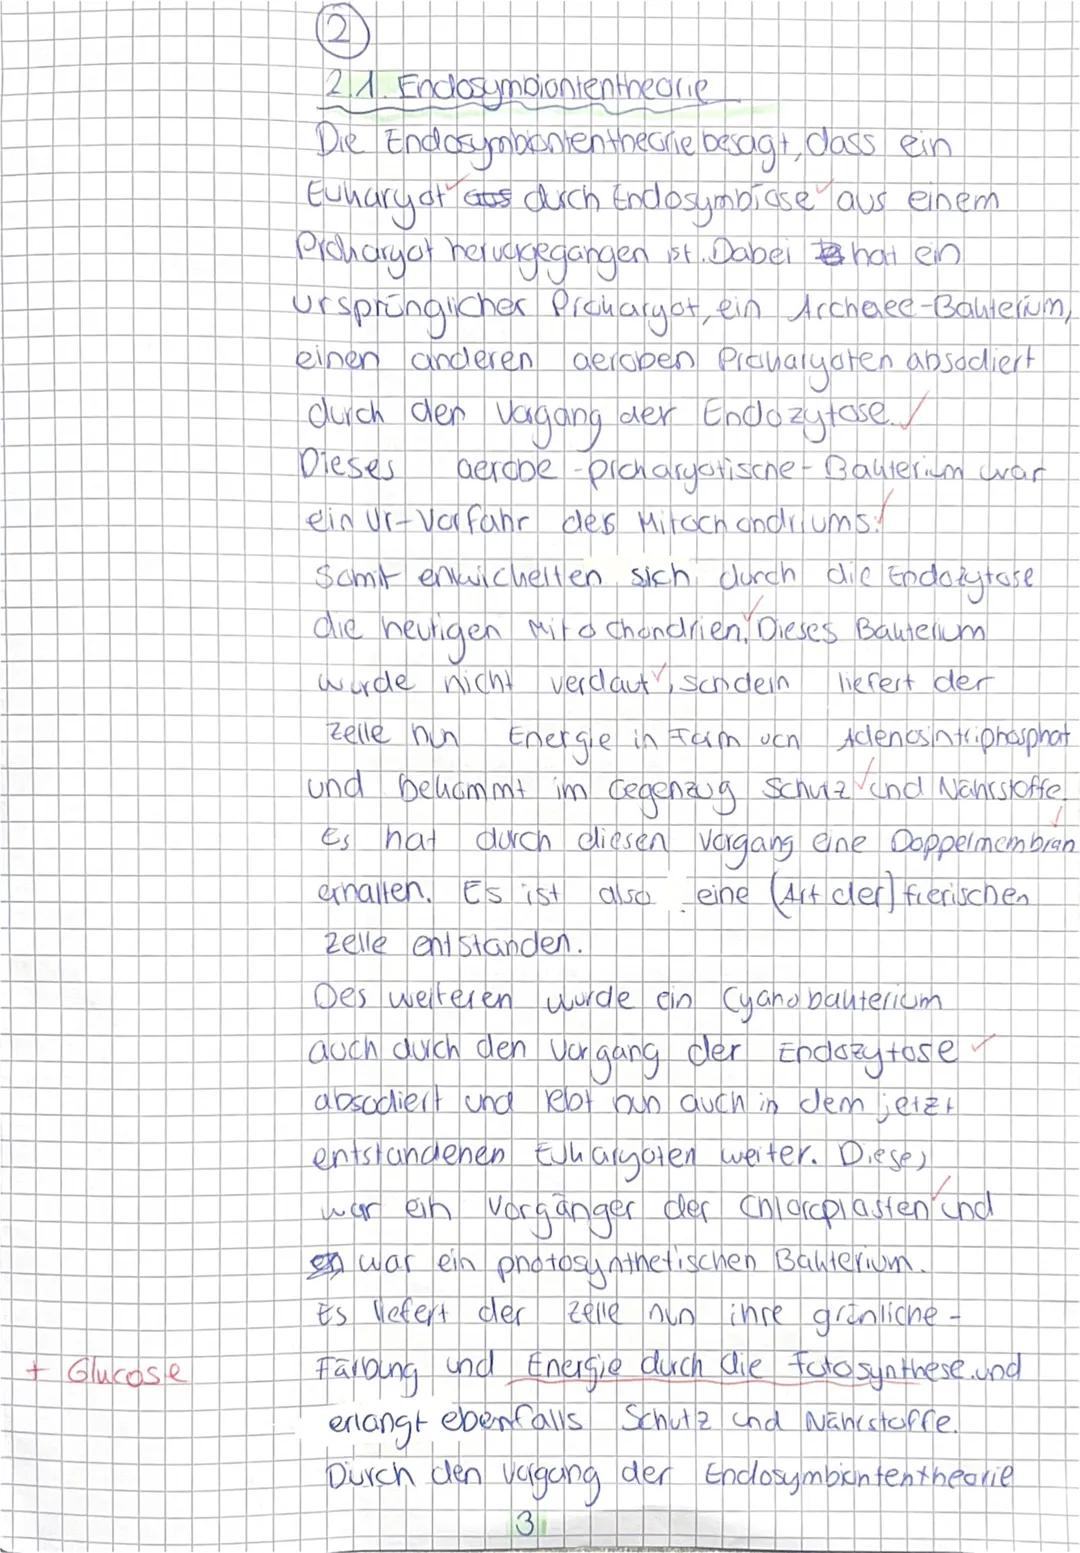 2
2.1. Endosymbiontentheorie
Die Endosymbiontentheorie besagt, dass ein
Eukaryot aus durch Endosymbiose aus einem
Prokaryot hervorgegangen ist. Dabei hat ein
ursprünglicher Prokaryot, ein Archaee-Bakterium,
einen anderen aeroben Prokaryoten absodiert
durch den Vorgang der Endozytose.
Dieses aerobe-prokaryotische-Bakterium war
ein Ur-Vorfahr des Mitochondriums.
Somit entwickelten sich durch die Endozytose
die heutigen Mitochondrien. Dieses Bakterium
wurde nicht verdaut, sondern liefert der
Zelle nun Energie in Form von Adenosintriphosphat
und bekommt im Gegenzug Schutz und Nährstoffe.
Es hat durch diesen Vorgang eine Doppelmembran
erhalten. Es ist also eine (Art der) tierischen
Zelle entstanden.
Des weiteren wurde ein Cyanobakterium
auch durch den Vorgang der Endozytose
absodiert und lebt nun auch in dem jetzt
entstandenen Eukaryoten weiter. Dieses
war ein Vorgänger der Chloroplasten und
war ein photosynthetischen Bakterium.
Es liefert der Zelle nun ihre grünliche-
+ Glucose Färbung und Energie durch die Fotosynthese und
erlangt ebenfalls Schutz und Nährstoffe.
Durch den Vorgang der Endosymbiontentheorie
3